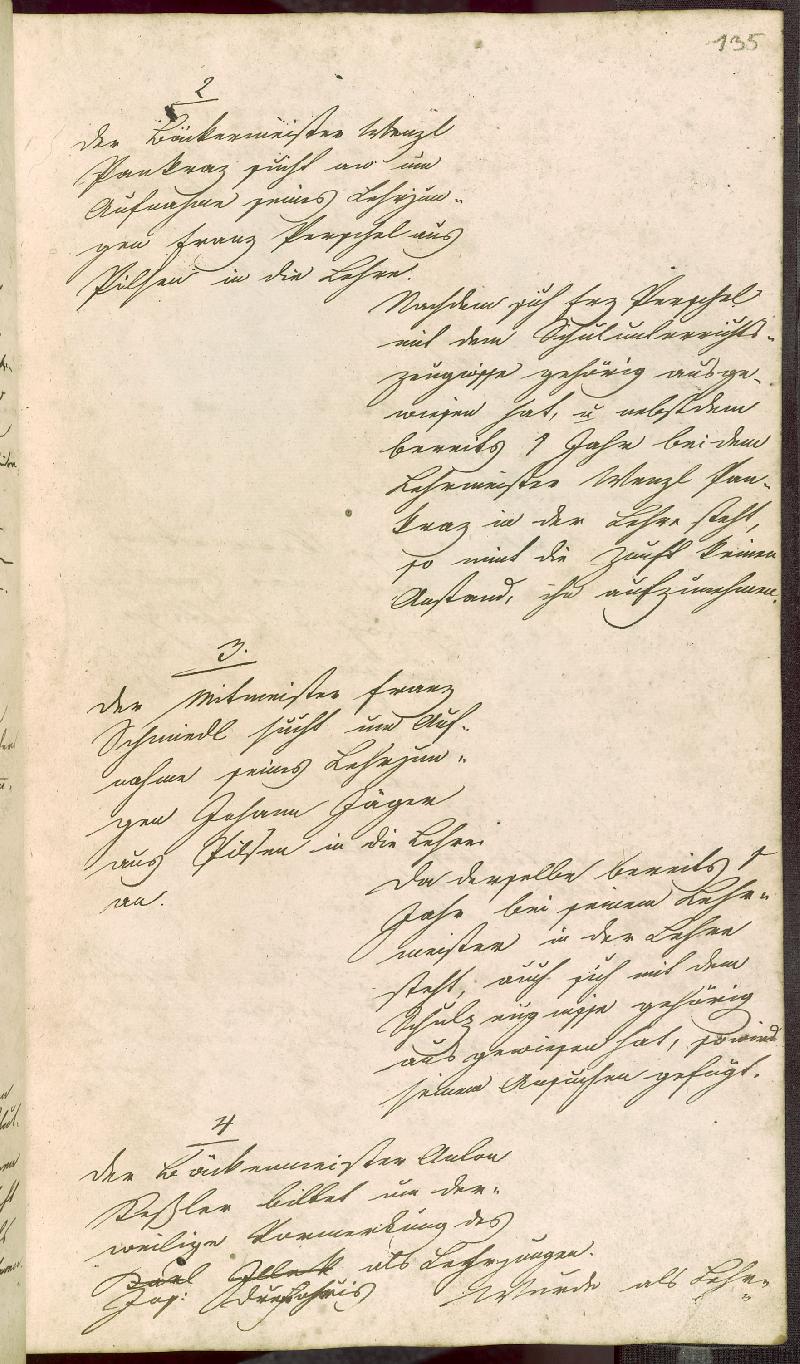 135
2
Der Böckermeister Wenzl
Pankraz sucht an um
Aufnahme seines Lehrjun-
gen Franz Perschel aus
Pilsen in die Lehre.
Nachdem sich Frz Perschel
mit dem Schulunterrichts-
zeugnisse gehörig ausge-
wiesen hat, u nebstdem
bereits 1 Jahr bei dem
Lehrmeister Wenzl Pan-
kraz in der Lehre steht,
so nimt die Zunft keinen
Anstand, ihn aufzunehmen.
3.
Der Mitmeister Franz
Schmiedl sucht um Auf-
nahme seines Lehrjun-
gen Johann Jäger
aus Pilsen in die Lehre
an.
Da derselbe bereits 1
Jahr bei seinem Lehr-
meister in der Lehre
steht, auch sich mit dem
Schulzeugnisse gehörig
ausgewiesen hat, so wird
seinem Ansuchen gefügt.
4
Der Böckenmeister Anton
Keßler bittet um der-
weilige Vormerkung des
als Lehrjungen.
Jos:
Wurde als Lehr-